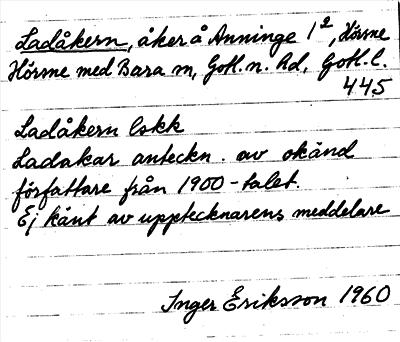 Ladåkern, åker å Anninge 1², Hörsne
Hörsne med Bara sn, Gotl. n. hd, Gotl. l.
445
Ladåkern lskk
Ladakar anteckn. av okänd
författare från 1900-talet.
Ej känt av upptecknarens meddelare
Inger Eriksson 1960